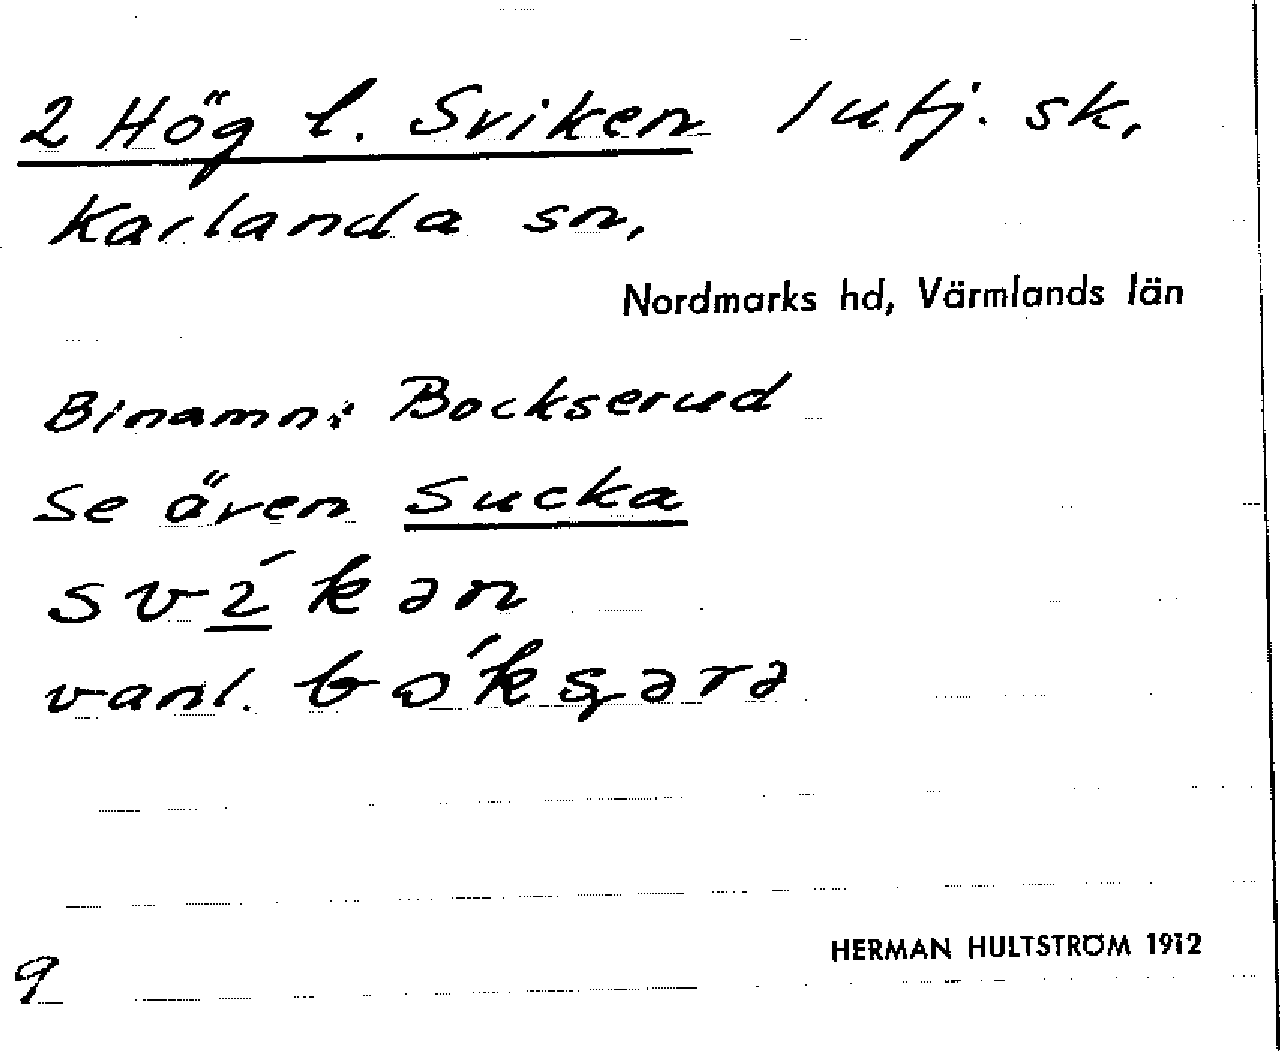 2 Hög l. Sviken 1 utj. sk,
Karlanda sn,
Nordmarks hd, Värmlands län
Binamn: Bockserud
Se även Sucka
sv2́kən
vanl. bóksərə
HERMAN HULTSTRÖM 1912
9